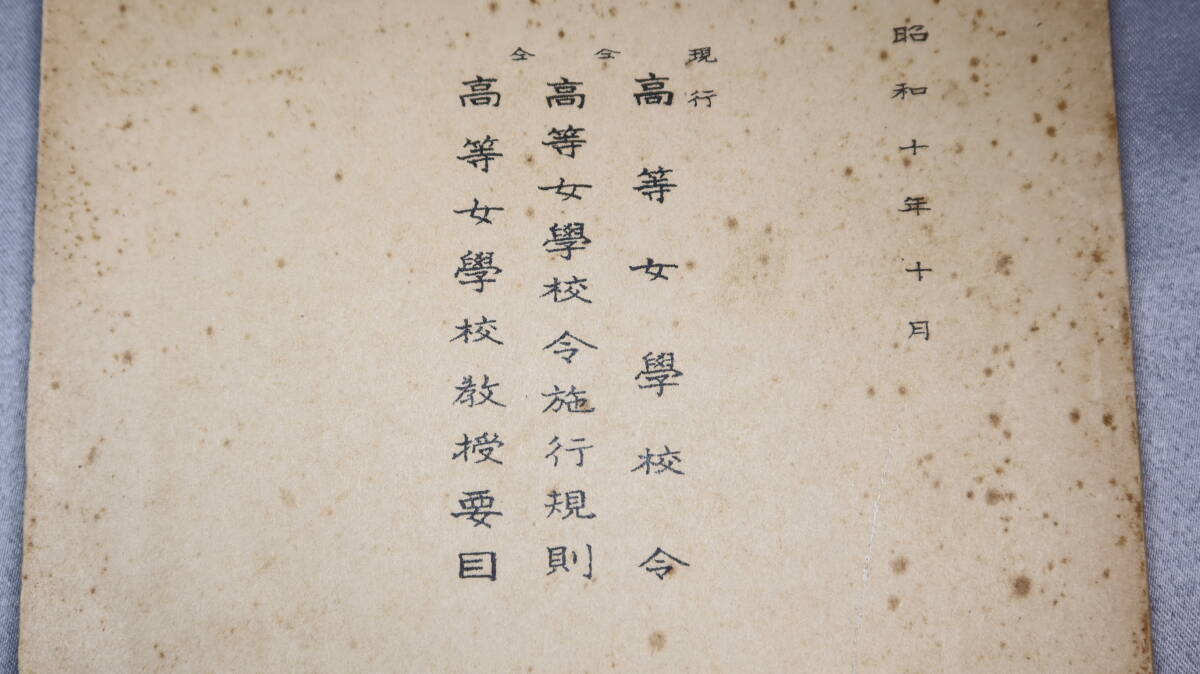 昭和十年十月
現行
高等女學校令
仝
高等女學校令施行規則
仝
高等女學校教授要目